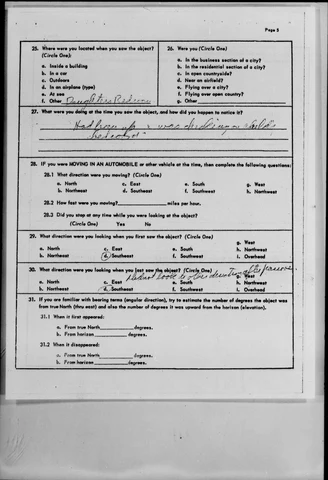 Page 5
25. Where were you located when you saw the object?
(Circle One):
a. Inside a building
b. In a car
c. Outdoors
d. In an airplane (type)
e. At sea
f. Other Daughters
26. Were you (Circle One)
a. In the business section of a city?
b. In the residential section of a city?
c. In open countryside?
d. Near an airfield?
e. Flying over a city?
f. Flying over open country?
g. Other
27. What were you doing at the time you saw the object, and how did you happen to notice it?
Had up & was
28. IF you were MOVING IN AN AUTOMOBILE or other vehicle at the time, then complete the following questions:
28.1 What direction were you moving? (Circle One)
a. North c. East e. South g. West
b. Northeast d. Southeast f. Southwest h. Northwest
28.2 How fast were you moving? miles per hour.
28.3 Did you stop at any time while you were looking at the object?
(Circle One) Yes No
29. What direction were you looking when you first saw the object? (Circle One)
a. North c. East e. South g. West
b. Northeast d. Southeast f. Southwest h. Northwest
i. Overhead
30. What direction were you looking when you last saw the object? (Circle One)
look
a. North c. East e. South g. West
b. Northeast d. Southeast f. Southwest h. Northwest
i. Overhead
31. If you are familiar with bearing terms (angular direction), try to estimate the number of degrees the object was
from true North (thru west) and also the number of degrees it was upward from the horizon (elevation).
31.1 When it first appeared:
a. From true North degrees.
b. From horizon degrees.
31.2 When it disappeared:
a. From true North degrees.
b. From horizon degrees.